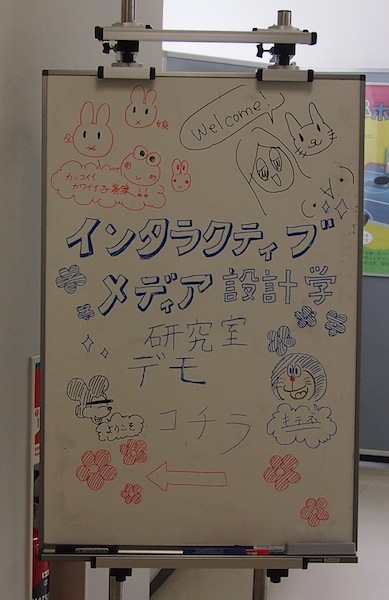 Welcome!
父
娘
カッコイイ
カワイイ子募集!!
インタラクティブ
メディア設計学
研究室
デモ
ようこそ
コチラ